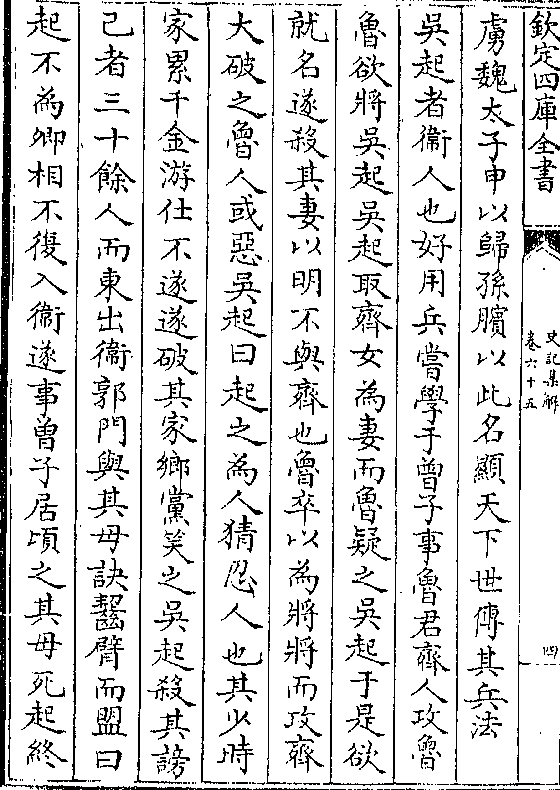 欽定四庫全書
史記集解
卷六十五
四
虜魏太子申以歸孫臏以此名顯天下世傳其兵法
吳起者衛人也好用兵嘗學于曽子事魯君齊人攻魯
魯欲將吳起吳起取齊女為妻而魯疑之吳起于是欲
就名遂殺其妻以明不與齊也魯卒以為將將而攻齊
大破之魯人或惡吳起曰起之為人猜忍人也其少時
家累千金游仕不遂遂破其家鄉黨笑之吳起殺其謗
己者三十餘人而東出衛郭門與其母訣齧臂而盟曰
起不為卿相不復入衛遂事曽子居頃之其母死起終